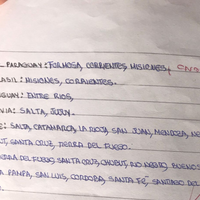 PARAGUAY: FORMOSA, CORRIENTES, MISIONES,
SIL: MISIONES, CORRIENTES.
GUAY: ENTRE RIOS,
VIA: SALTA, JUJUY.
E: SALTA, CATAMARCA, LA RIOJA, SAN JUAN, MENDOZA, NE
SANTA CRUZ, TIERRA DEL FUEGO.
DEL FUEGO, SANTA CRUZ, CHUBUT, RIO NEGRO, BUENOS
PAMPA, SAN LUIS, CORDOBA, SANTA FE, SANTIAGO DEL